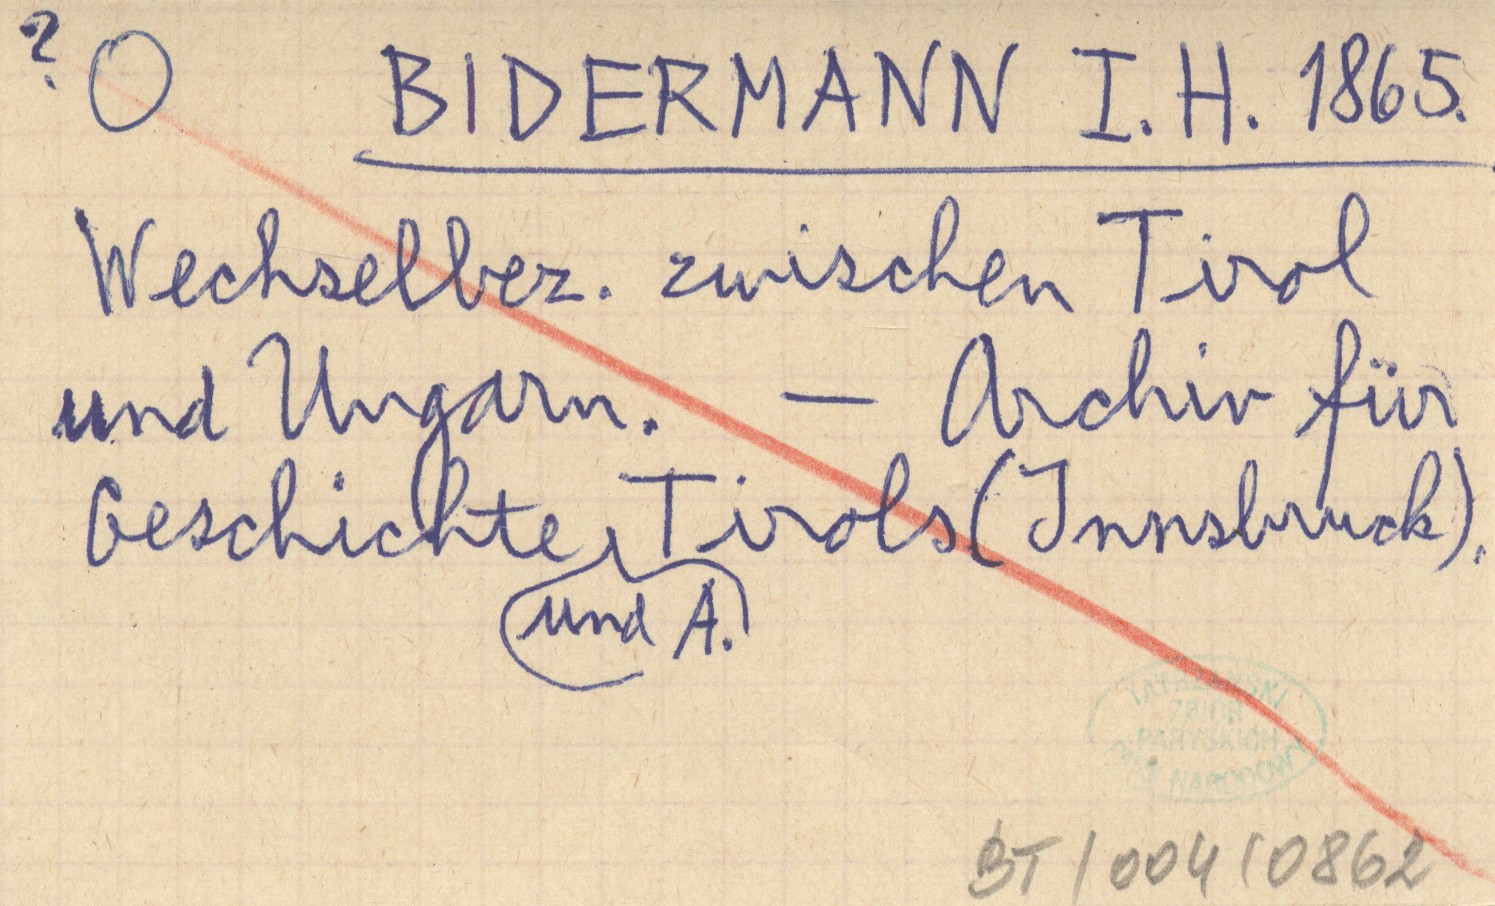 ? O BIDERMANN I. H. 1865.
Wechselbez. zwischen Tirol
und Ungarn. — Archiv für
Geschichte Tirols (Innsbruck).
und A.
TATRZAŃSKI
ZBIÓR
PARYSKICH
PARK NARODOWY
BT/004/0862